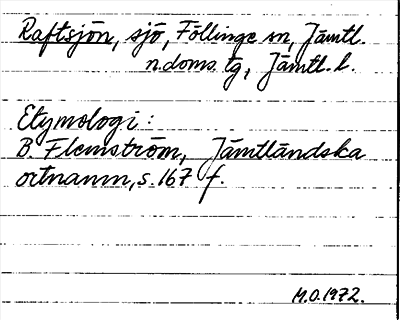 Raftsjön, sjö, Föllinge sn, Jämtl.
n.doms. tg, Jämtl. l.
Etymologi:
B. Flemström, Jämtländska
ortnamn, s. 167 f.
M.O. 1972.